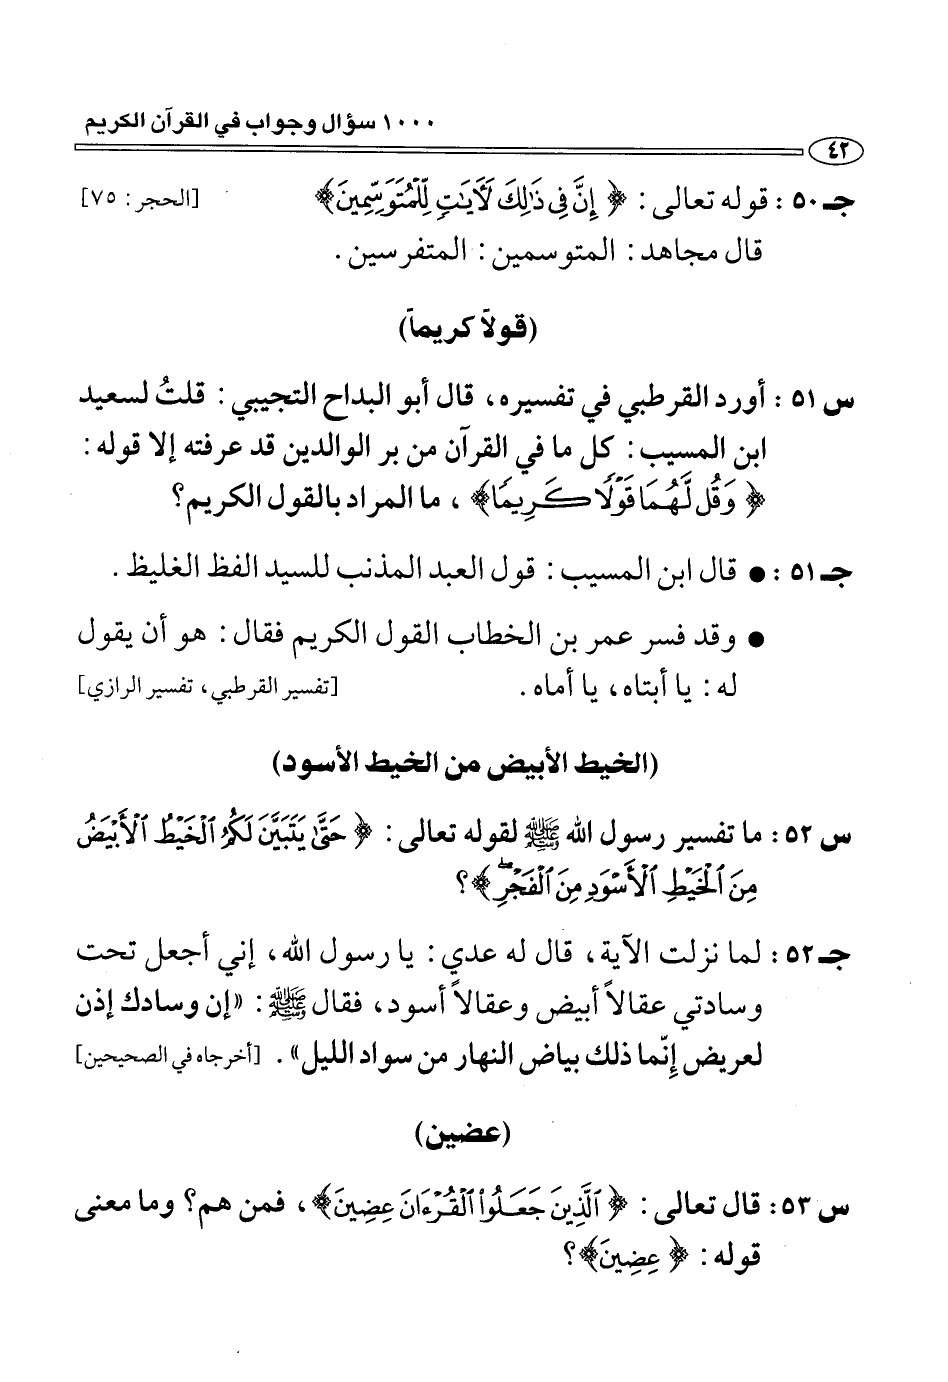 ١٠٠٠ سؤال وجواب في القرآن الكريم
٤٢
جـ ٥٠ : قوله تعالى : ﴿ إِنَّ فِي ذَٰلِكَ لَآيَاتٍ لِّلْمُتَوَسِّمِينَ ﴾ [الحجر : ٧٥]
قال مجاهد : المتوسمين : المتفرسين .
(قولاً كريماً)
س ٥١ : أورد القرطبي في تفسيره، قال أبو البداح التجيبي : قلتُ لسعيد
ابن المسيب : كل ما في القرآن من بر الوالدين قد عرفته إلا قوله :
﴿ وَقُل لَّهُمَا قَوْلًا كَرِيمًا ﴾ ، ما المراد بالقول الكريم؟
جـ ٥١ : ● قال ابن المسيب : قول العبد المذنب للسيد الفظ الغليظ .
● وقد فسر عمر بن الخطاب القول الكريم فقال : هو أن يقول
له : يا أبتاه، يا أماه . [تفسير القرطبي، تفسير الرازي]
(الخيط الأبيض من الخيط الأسود)
س ٥٢ : ما تفسير رسول الله ﷺ لقوله تعالى : ﴿ حَتَّىٰ يَتَبَيَّنَ لَكُمُ ٱلْخَيْطُ ٱلْأَبْيَضُ
مِنَ ٱلْخَيْطِ ٱلْأَسْوَدِ مِنَ ٱلْفَجْرِ ۖ ﴾؟
جـ ٥٢ : لما نزلت الآية، قال له عدي : يا رسول الله، إني أجعل تحت
وسادتي عقالاً أبيض وعقالاً أسود، فقال ﷺ : «إن وسادك إذن
لعريض إنّما ذلك بياض النهار من سواد الليل» . [أخرجاه في الصحيحين]
(عضين)
س ٥٣ : قال تعالى : ﴿ ٱلَّذِينَ جَعَلُوا۟ ٱلْقُرْءَانَ عِضِينَ ﴾ ، فمن هم؟ وما معنى
قوله : ﴿ عِضِينَ ﴾؟